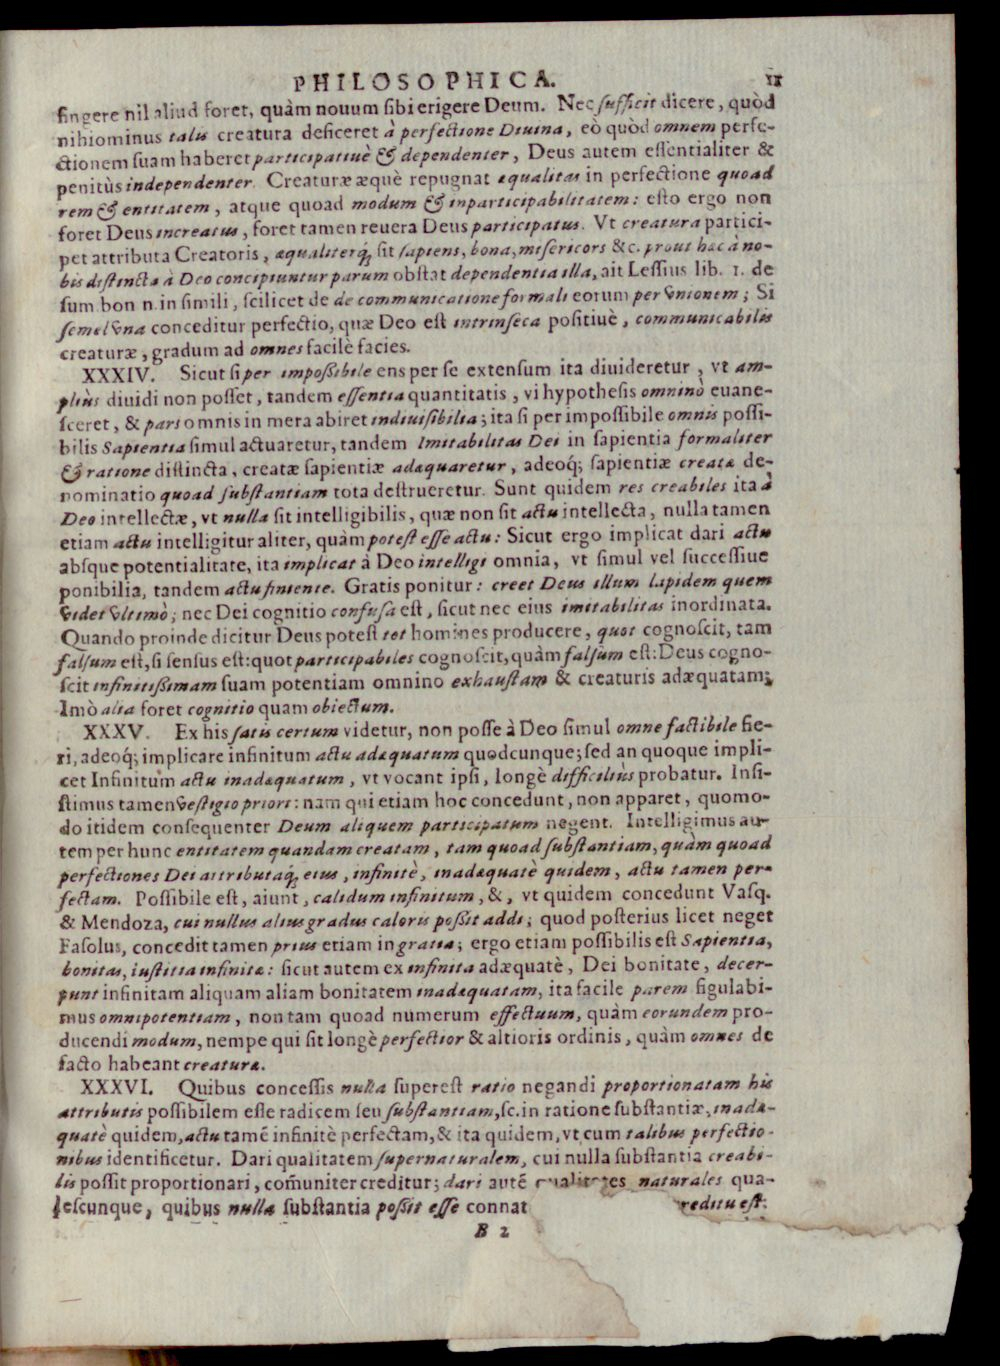 PHILOSOPHICA. 11
fingere nil aliud foret, quàm nouum sibi erigere Deum. Nec sufficit dicere, quòd
nihiominus talis creatura deficeret à perfectione Diuina, eò quòd omnem perfe-
ctionem suam haberet participatiuè & dependenter, Deus autem essentialiter &
penitùs independenter. Creaturæ æquè repugnat æqualitas in perfectione quoad
rem & entitatem, atque quoad modum & inparticipabilitatem: esto ergo non
foret Deus increatus, foret tamen reuera Deus participatus. Vt creatura partici-
pet attributa Creatoris, æqualiterq́; sit sapiens, bona, misericors &c. prout hæc à no-
bis distincta à Deo concipiuntur parum obstat dependentia illa, ait Lessius lib. 1. de
sum bon n. in simili, scilicet de de communicatione formali eorum per vnionem; Si
semel vna conceditur perfectio, quæ Deo est intrinseca positiuè, communicabilis
creaturæ, gradum ad omnes facilè facies.
XXXIV. Sicut si per impoßibile ens per se extensum ita diuideretur, vt am-
pliùs diuidi non posset, tandem essentia quantitatis, vi hypothesis omninò euane-
sceret, & pars omnis in mera abiret indiuisibilia; ita si per impossibile omnis possi-
bilis Sapientia simul actuaretur, tandem Imitabilitas Dei in sapientia formaliter
& ratione distincta, creatæ sapientiæ adæquaretur, adeoq́; sapientiæ creatæ de-
nominatio quoad substantiam tota destrueretur. Sunt quidem res creabiles ita à
Deo intellectæ, vt nulla sit intelligibilis, quæ non sit actu intellecta, nulla tamen
etiam actu intelligitur aliter, quàm potest esse actu: Sicut ergo implicat dari actu
absque potentialitate, ita implicat à Deo intelligi omnia, vt simul vel successiue
ponibilia, tandem actu finiente. Gratis ponitur: creet Deus illum lapidem quem
videt vltimò; nec Dei cognitio confusa est, sicut nec eius imitabilitas inordinata.
Quando proinde dicitur Deus potest tot homines producere, quot cognoscit, tam
falsum est, si sensus est: quot participabiles cognoscit, quàm falsum est: Deus cogno-
scit infinitißimam suam potentiam omnino exhaustam & creaturis adæquatam;
Imò alia foret cognitio quam obiectum.
XXXV. Ex his satis certum videtur, non posse à Deo simul omne factibile fie-
ri, adeoq́; implicare infinitum actu adæquatum quodcunque; sed an quoque impli-
cet Infinitum actu inadæquatum, vt vocant ipsi, longè difficiliùs probatur. Insi-
stimus tamen vestigio priori: nam qui etiam hoc concedunt, non apparet, quomo-
do itidem consequenter Deum aliquem participatum negent. Intelligimus au-
tem per hunc entitatem quandam creatam, tam quoad substantiam, quàm quoad
perfectiones Dei attributaq́; eius, infinitè, inadæquatè quidem, actu tamen per-
fectam. Possibile est, aiunt, calidum infinitum, &, vt quidem concedunt Vasq.
& Mendoza, cui nullus alius gradus caloris poßit addi; quod posterius licet neget
Fasolus, concedit tamen prius etiam in gratia; ergo etiam possibilis est Sapientia,
bonitas, iustitia infinita: sicut autem ex infinita adæquatè, Dei bonitate, decer-
punt infinitam aliquam aliam bonitatem inadæquatam, ita facile parem sigulabi-
mus omnipotentiam, non tam quoad numerum effectuum, quàm eorundem pro-
ducendi modum, nempe qui sit longè perfectior & altioris ordinis, quàm omnes de
facto habeant creaturæ.
XXXVI. Quibus concessis nulla superest ratio negandi proportionatam his
attributis possibilem esse radicem seu substantiam, sc. in ratione substantiæ, inadæ-
quatè quidem, actu tamē infinitè perfectam, & ita quidem, vt cum talibus perfectio-
nibus identificetur. Dari qualitatem supernaturalem, cui nulla substantia creabi-
lis possit proportionari, com̃uniter creditur; dari autē qualitates naturales qua-
lescunque, quibus nulla substantia possit esse connat reditu est.
B 2